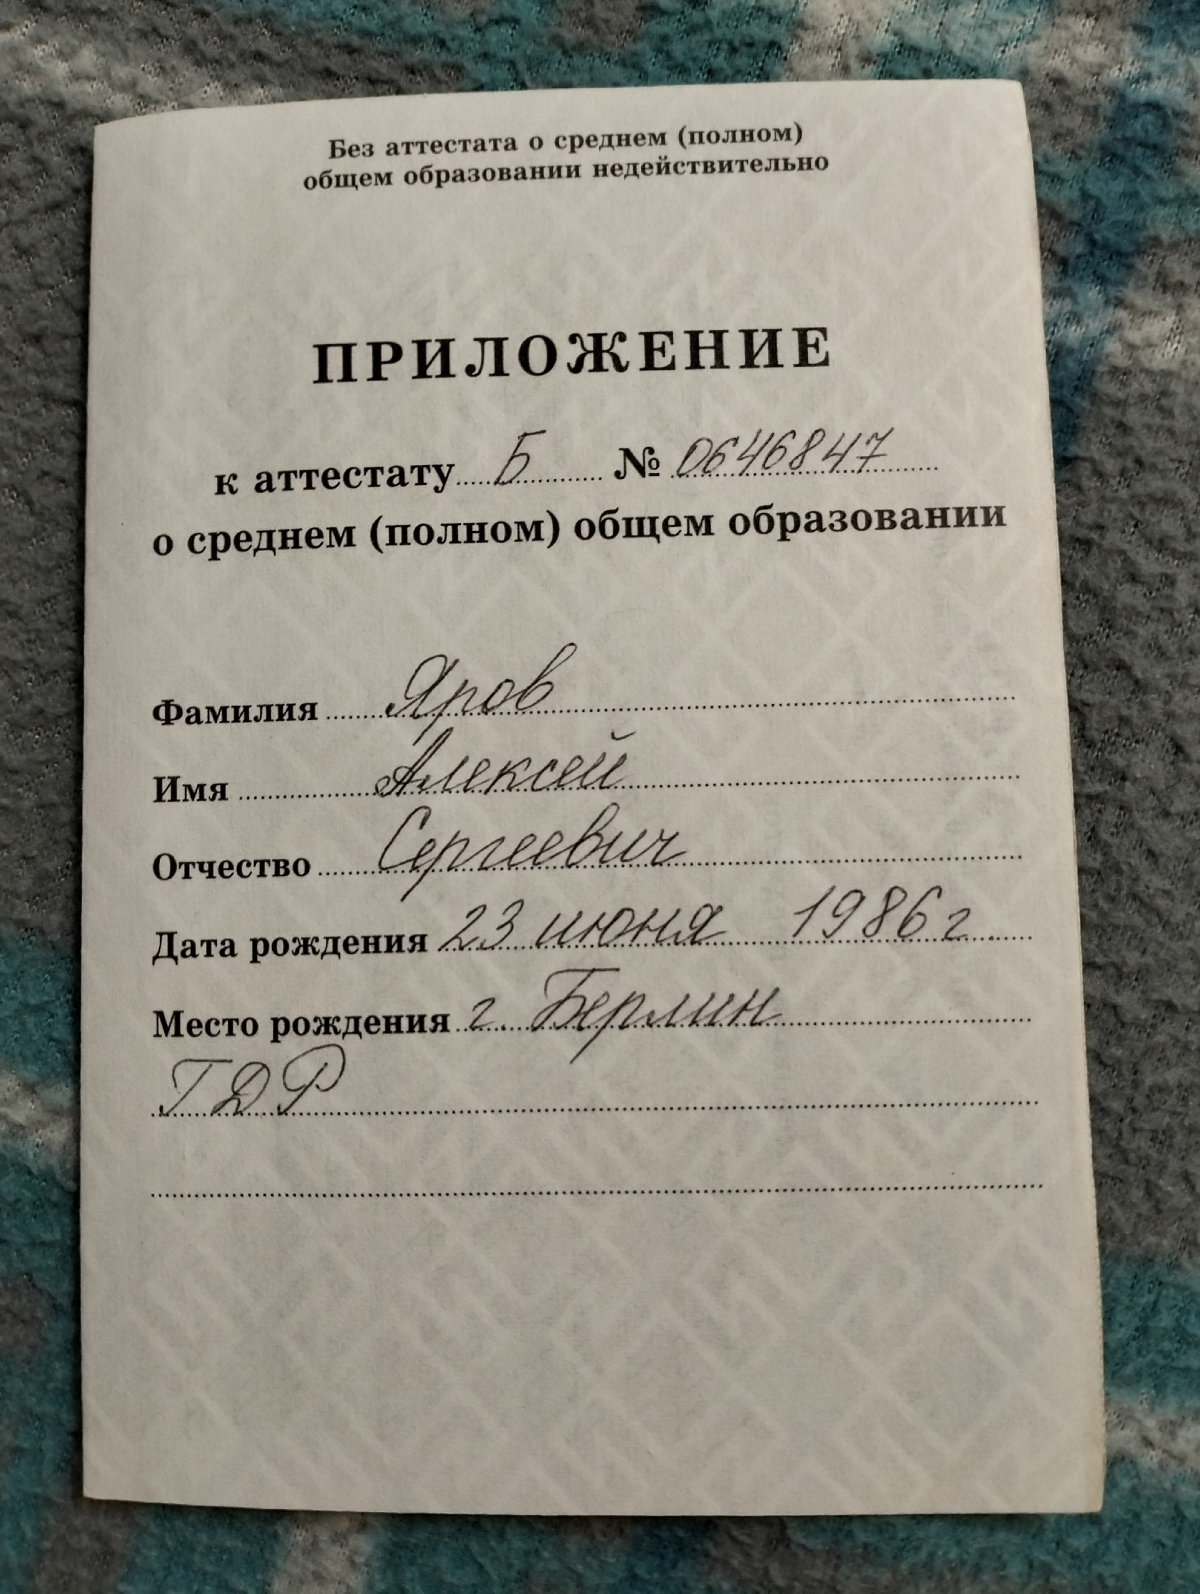 Без аттестата о среднем (полном)
общем образовании недействительно
ПРИЛОЖЕНИЕ
к аттестату Б № 0646847
о среднем (полном) общем образовании
Фамилия Яров
Имя Алексей
Отчество Сергеевич
Дата рождения 23 июня 1986 г.
Место рождения г. Берлин
ГДР